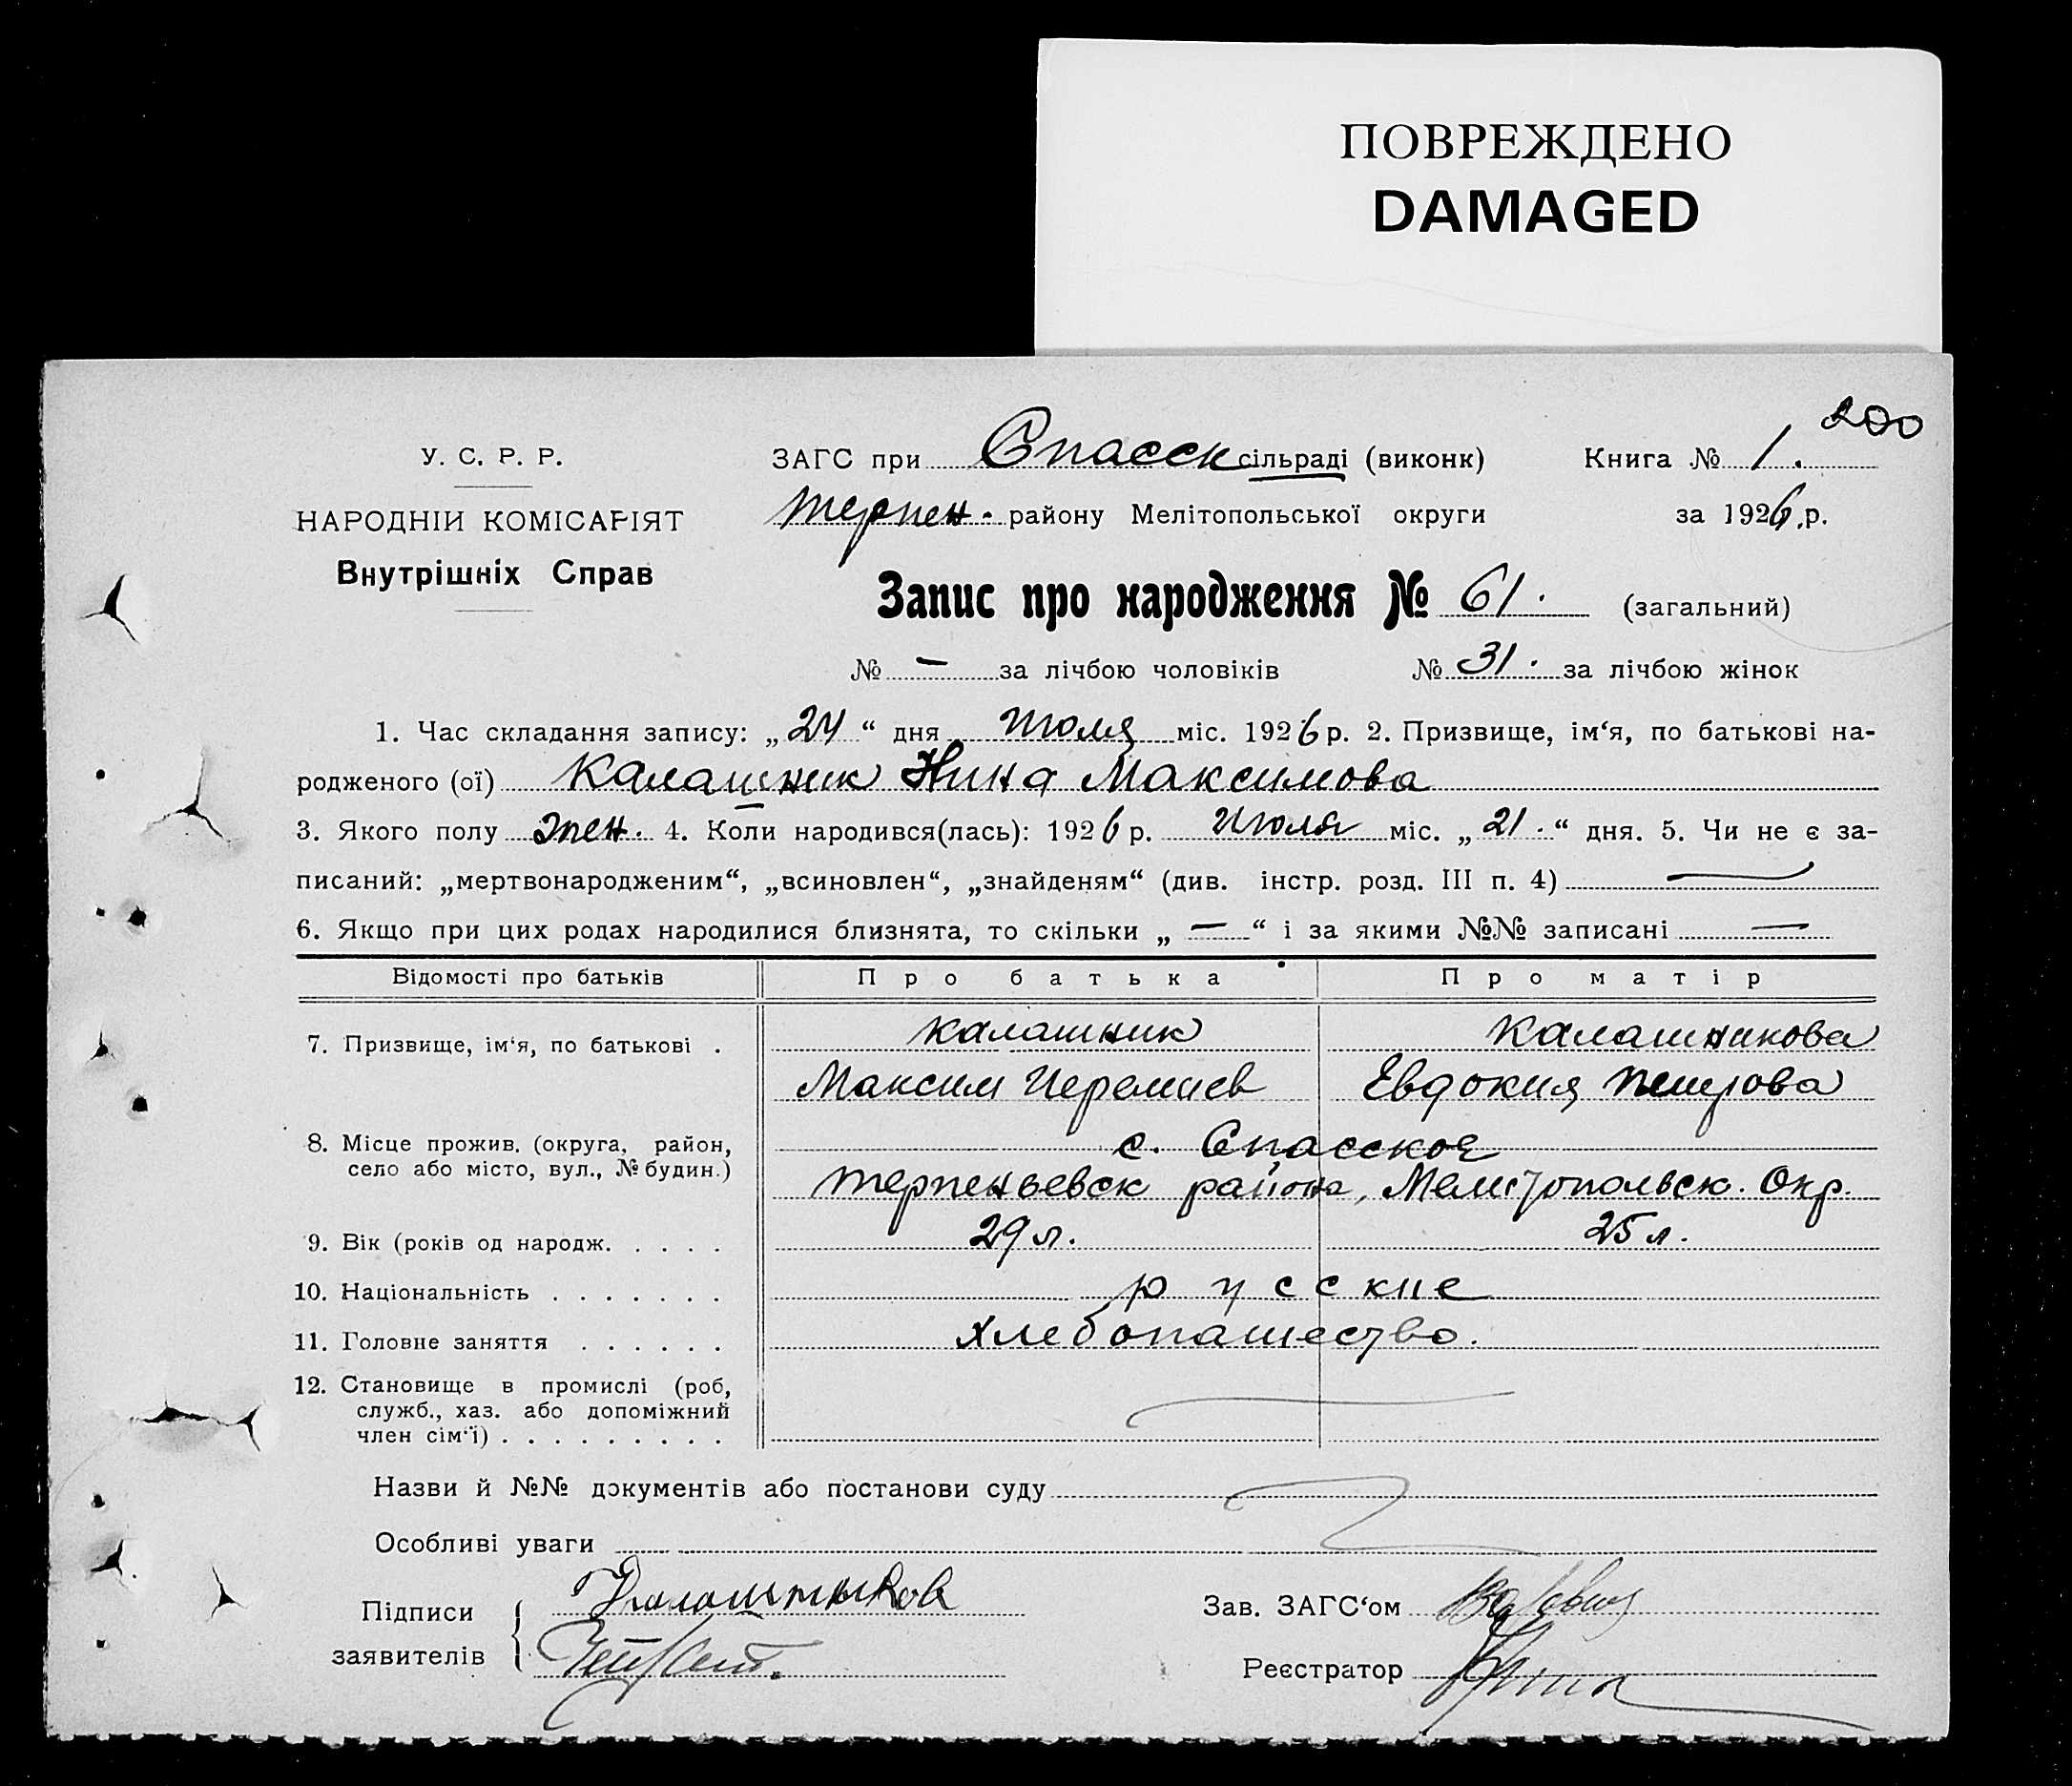 ПОВРЕЖДЕНО
DAMAGED
200
У. С. Р. Р.
ЗАГС при Спасск сільраді (виконк) Книга № 1.
НАРОДНІЙ КОМІСАРІЯТ
Терпен. району Мелітопольської округи за 1926 р.
Внутрішніх Справ
Запис про народження № 61. (загальний)
№ — за лічбою чоловіків № 31. за лічбою жінок
1. Час складання запису: „24“ дня Июля міс. 1926 р. 2. Призвище, ім‘я, по батькові на-
родженого (ої) Калашник Нина Максимова
3. Якого полу жен. 4. Коли народився(лась): 1926 р. Июля міс. „21.“ дня. 5. Чи не є за-
писаний: „мертвонародженим“, „всиновлен“, „знайденям“ (див. інстр. розд. III п. 4) —
6. Якщо при цих родах народилися близнята, то скільки „—“ і за якими №№ записані —
Відомості про батьків Про батька Про матір
7. Призвище, ім‘я, по батькові . Калашник Калашникова
Максим Иеремиев Евдокия Петрова
8. Місце прожив. (округа, район, с. Спасское
село або місто, вул., № будин.) Терпеньевск района, Мелитопольск. Окр.
9. Вік (років од народж. . . . . 29 л. 25 л.
10. Національність . . . . . . . русские
11. Головне заняття . . . . . . хлебопашество.
12. Становище в промислі (роб,
служб., хаз. або допоміжний
член сім‘ї) . . . . . . . . .
Назви й №№ документів або постанови суду
Особливі уваги
Підписи Калашников Зав. ЗАГС‘ом
заявителів Реєстратор